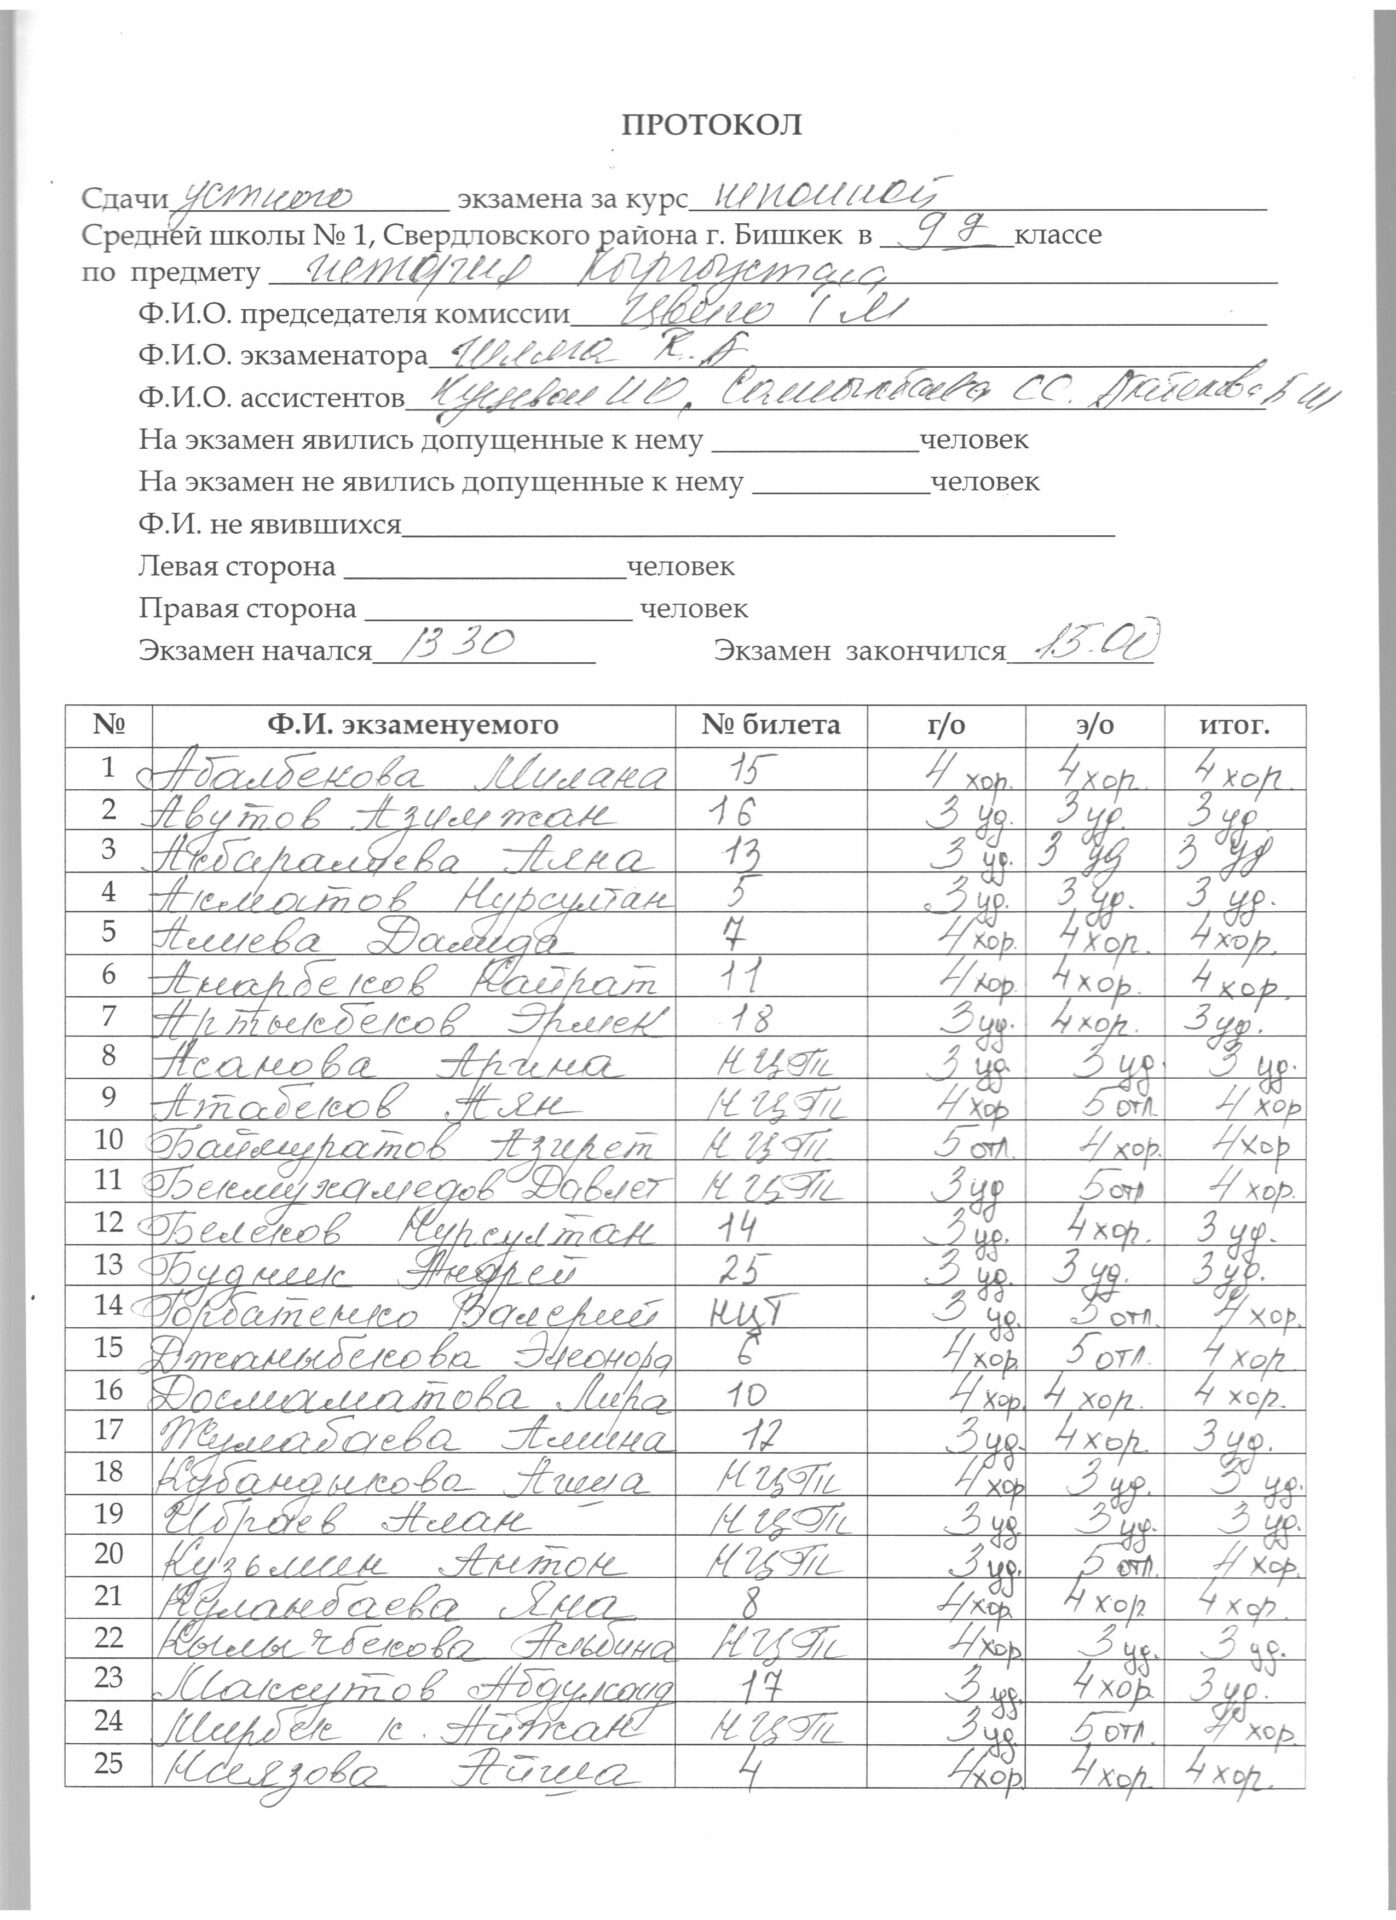 ПРОТОКОЛ
Сдачи устного экзамена за курс неполной
Средней школы № 1, Свердловского района г. Бишкек в 9 д классе
по предмету история Кыргызстана
Ф.И.О. председателя комиссии
Ф.И.О. экзаменатора
Ф.И.О. ассистентов
На экзамен явились допущенные к нему человек
На экзамен не явились допущенные к нему человек
Ф.И. не явившихся
Левая сторона человек
Правая сторона человек
Экзамен начался 13 30 Экзамен закончился 15.00
№ Ф.И. экзаменуемого № билета г/о э/о итог.
1 Абалбекова Милана 15 4 хор. 4 хор. 4 хор.
2 Авутов Азимжан 16 3 уд. 3 уд. 3 уд.
3 Акбаралиева Аяна 13 3 уд. 3 уд 3 уд
4 Акматов Нурсултан 5 3 уд. 3 уд. 3 уд.
5 Алиева Далида 7 4 хор. 4 хор. 4 хор.
6 Анарбеков Кайрат 11 4 хор. 4 хор. 4 хор.
7 Артыкбеков Эрмек 18 3 уд. 4 хор. 3 уд.
8 Асанова Арина НЦТ 3 уд. 3 уд. 3 уд.
9 Атабеков Аян НЦТ 4 хор 5 отл. 4 хор
10 Баймуратов Азирет НЦТ 5 отл. 4 хор. 4 хор
11 Бекмухамедов Давлет НЦТ 3 уд 5 отл 4 хор.
12 Белеков Нурсултан 14 3 уд. 4 хор. 3 уд.
13 Будник Андрей 25 3 уд. 3 уд. 3 уд.
14 Горбатенко Валерий НЦТ 3 уд. 5 отл. 4 хор.
15 Джаныбекова Элеонора 6 4 хор. 5 отл. 4 хор.
16 Досмаматова Лира 10 4 хор. 4 хор. 4 хор.
17 Жумабаева Амина 12 3 уд. 4 хор. 3 уд.
18 Кубандыкова Аиша НЦТ 4 хор 3 уд. 3 уд.
19 Ибраев Алан НЦТ 3 уд. 3 уд. 3 уд.
20 Кузьмин Антон НЦТ 3 уд. 5 отл. 4 хор.
21 Куланбаева Яна 8 4 хор 4 хор 4 хор.
22 Кылычбекова Альбина НЦТ 4 хор 3 уд. 3 уд.
23 Максутов Абдулсаид 17 3 уд. 4 хор. 3 уд.
24 Мирбек к. Айжан НЦТ 3 уд. 5 отл. 4 хор.
25 Ниязова Айша 4 4 хор. 4 хор. 4 хор.